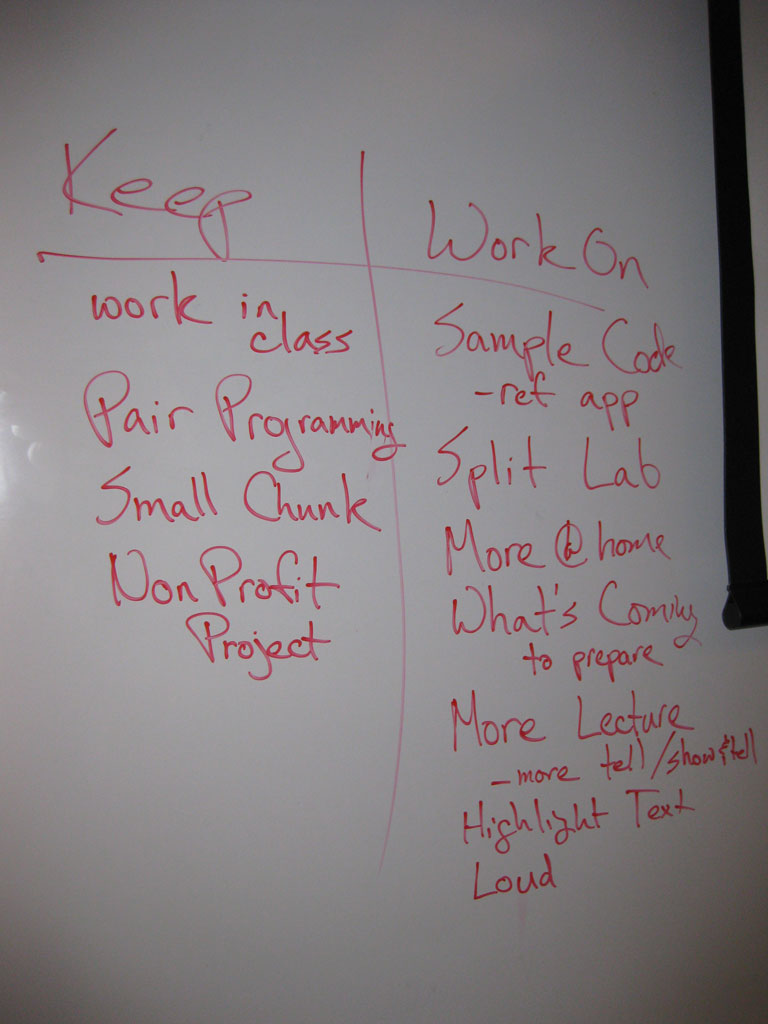 Keep
work in
class
Pair Programming
Small Chunk
Non Profit
Project
Work On
Sample Code
- ref app
Split Lab
More @ home
What's Coming
to prepare
More Lecture
- more tell/show & tell
Highlight Text
Loud